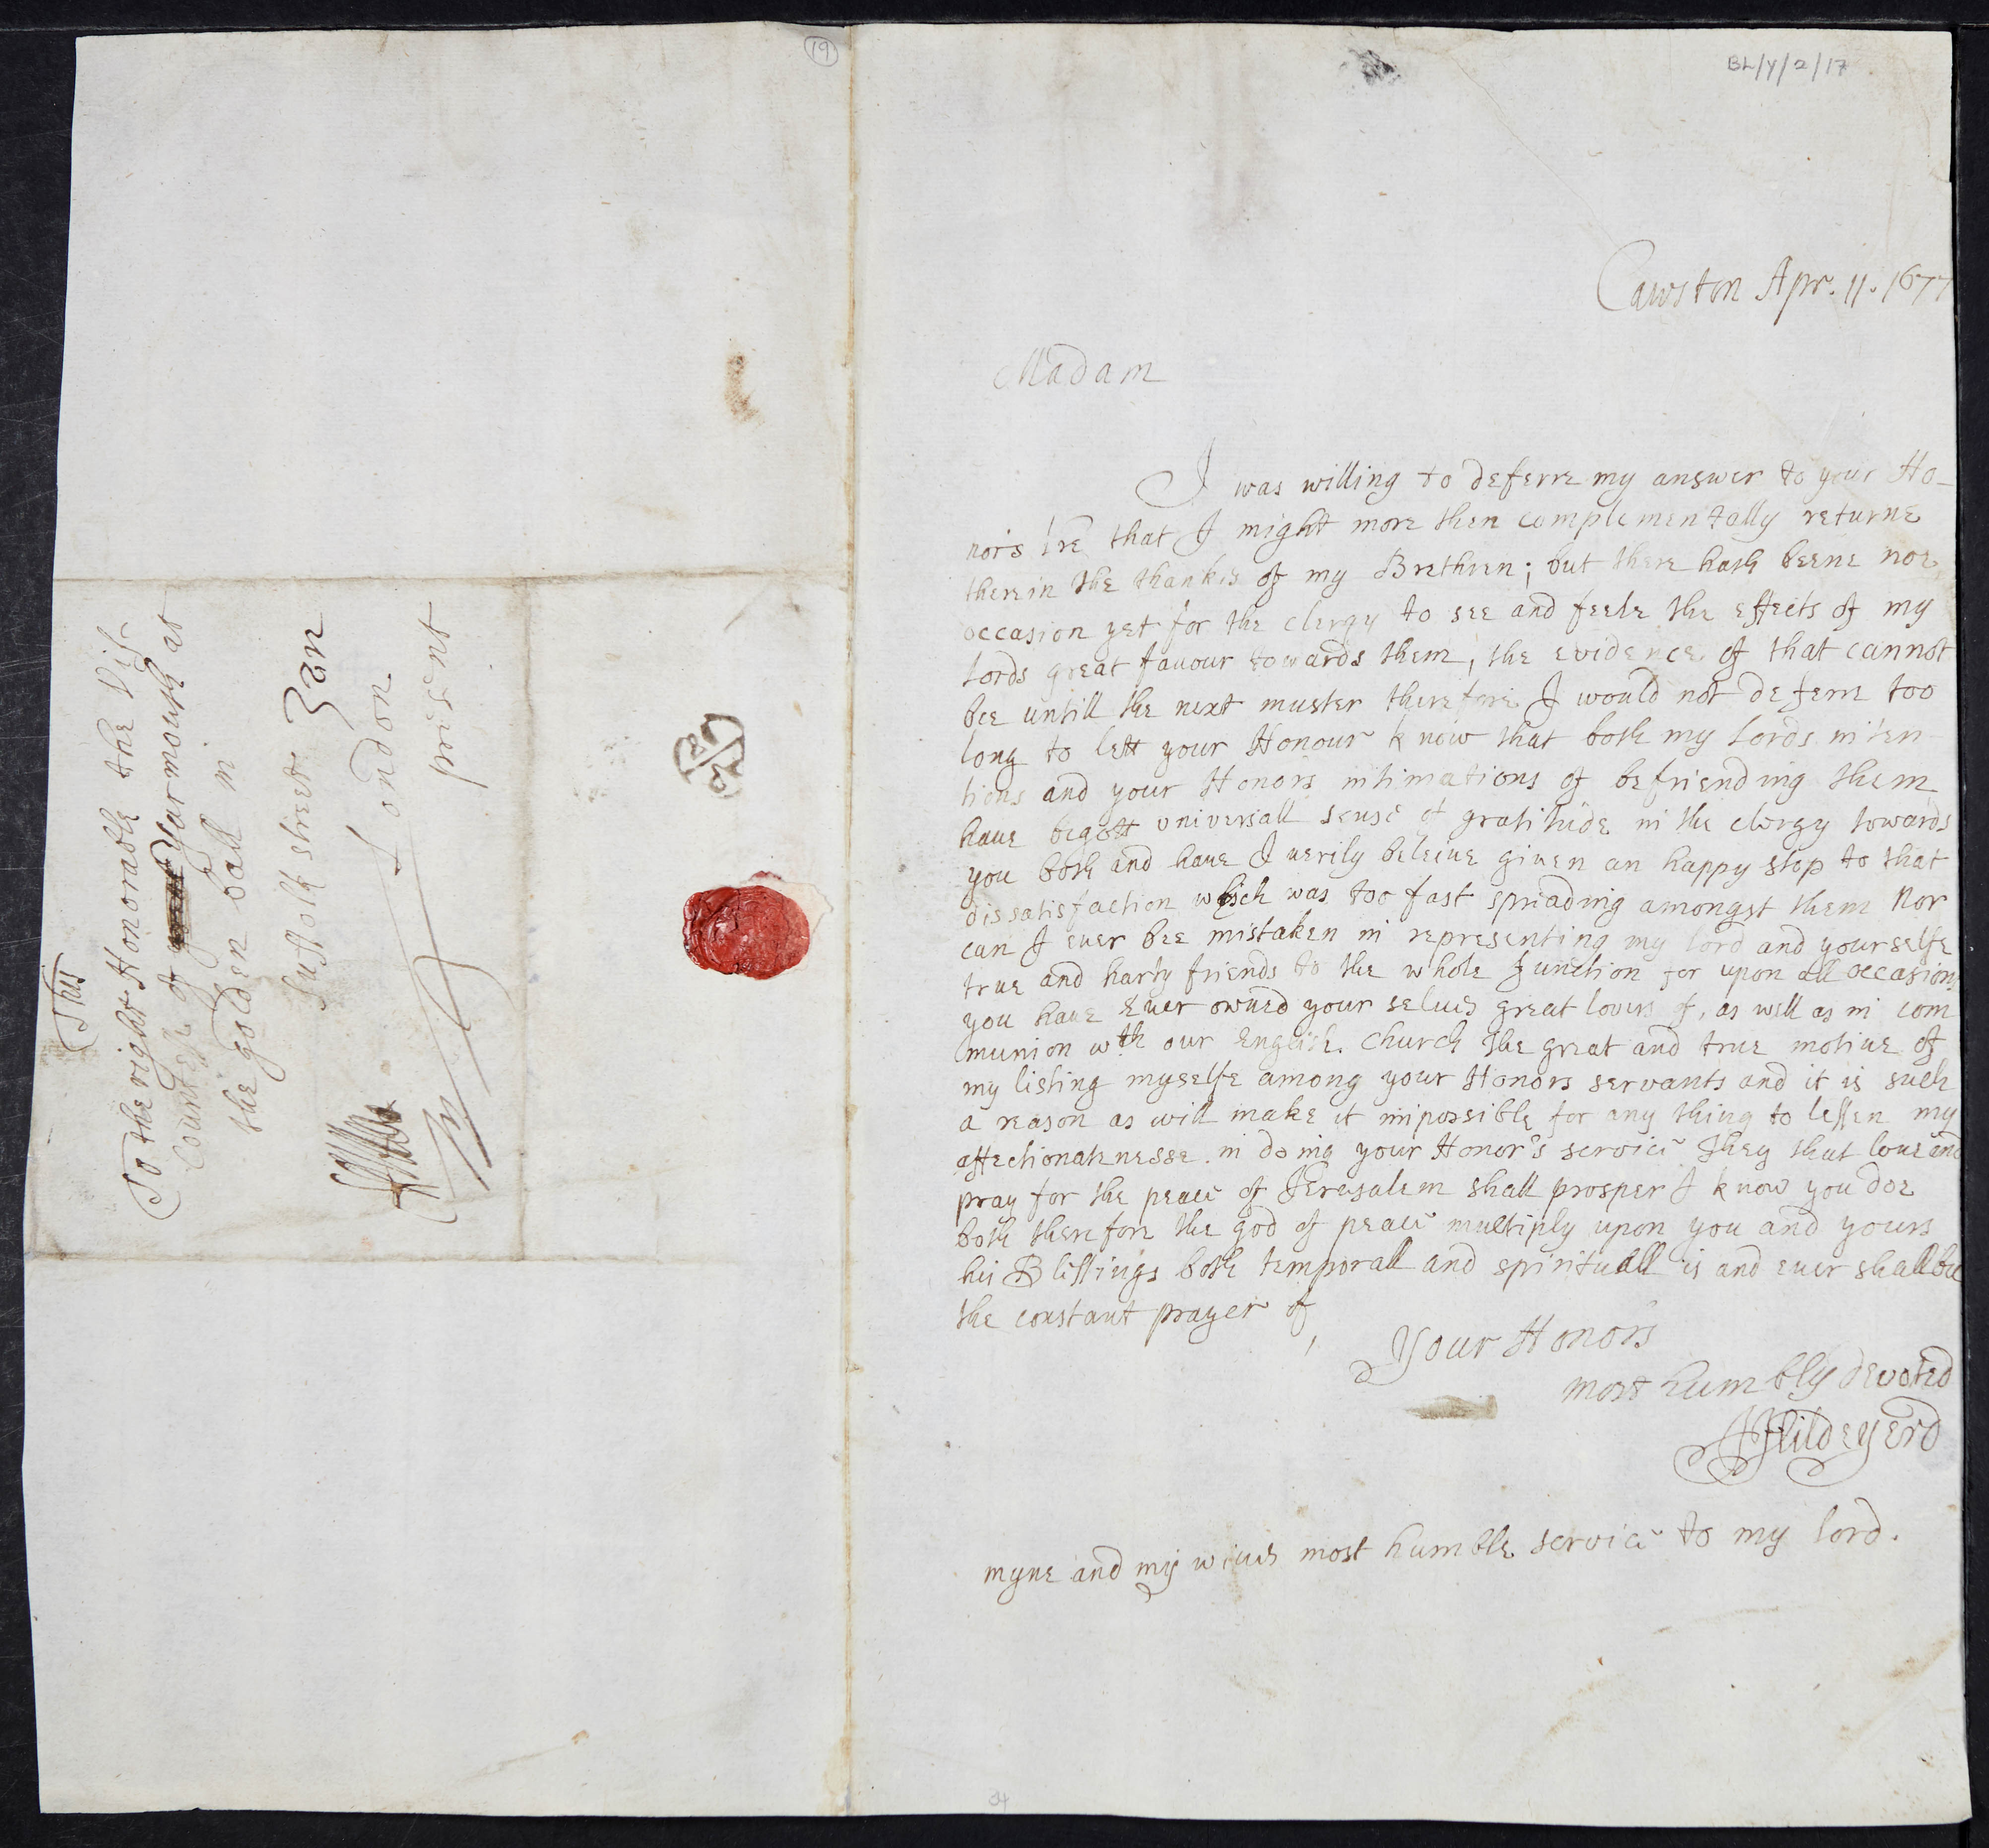 19
BL/Y/2/17
Cawston Apr. 11. 1677
Madam
I was willing to deferre my answer to your Ho-
nors lre that I might more then complementally returne
therein the thanks of my Brethren; but there hath beene noe
occasion yet for the clergy to see and feele the effects of my
Lords great favour towards them, the evidence of that cannot
bee untill the next muster therefore I would not deferre too
long to lett your Honour know that both my Lords inten-
tions and your Honors intimations of befriending them
haue begott universall sense of gratitude in the clergy towards
you both and haue I uerily beleiue giuen an happy stop to that
dissatisfaction which was too fast spreading amongst them Nor
can I euer bee mistaken in representing my lord and yourselfe
true and harty friends to the whole function for upon all occasions
you haue euer owned your selues great louers of, as well as in com
munion wth our English Church the great and true motiue of
my listing myselfe among your Honors servants and it is such
a reason as will make it impossible for any thing to lessen my
affectionatenesse in doing your Honor's service They that loue and
pray for the peace of Jerusalem shall prosper I know you doe
both therefore the god of peace multiply upon you and yours
his Blessings both temporall and spirituall is and euer shall bee
the constant prayer of
Your Honors
most humbly devoted
JHildeyerd
myne and my wiues most humble service to my lord.
This
To the right Honorable the Vis-
Countesse of Yarmouth at
the golden ball in
Suffolk street
London
present